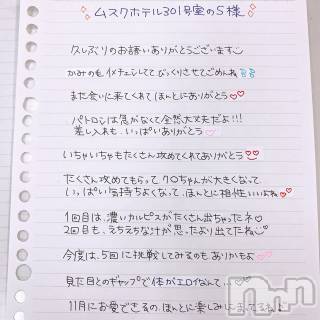 ムスクホテル301号室のS様
久しぶりのお誘いありがとうございます
かみのもイメチェンしてびっくりさせてごめんね
また会いに来てくれてほんとにありがとう
パトロンは急がなくて全然大丈夫だよ!!!
差し入れも、いっぱいありがとう
いちゃいちゃもたくさん攻めてくれてありがとう
たくさん攻めてもらって、クロちゃんが大きくなって
いっぱい気持ちよくなって、ほんとに相性いいよね
1回目は、濃いカルピスがたくさん出ちゃったネ
2回目も、えちえちな汁が思ったより出てたね
今度は、5回に挑戦してみるのもありかもよ
見た目とのギャップで体がエロイなんて...
11月にお愛できるの、ほんとに楽しみに